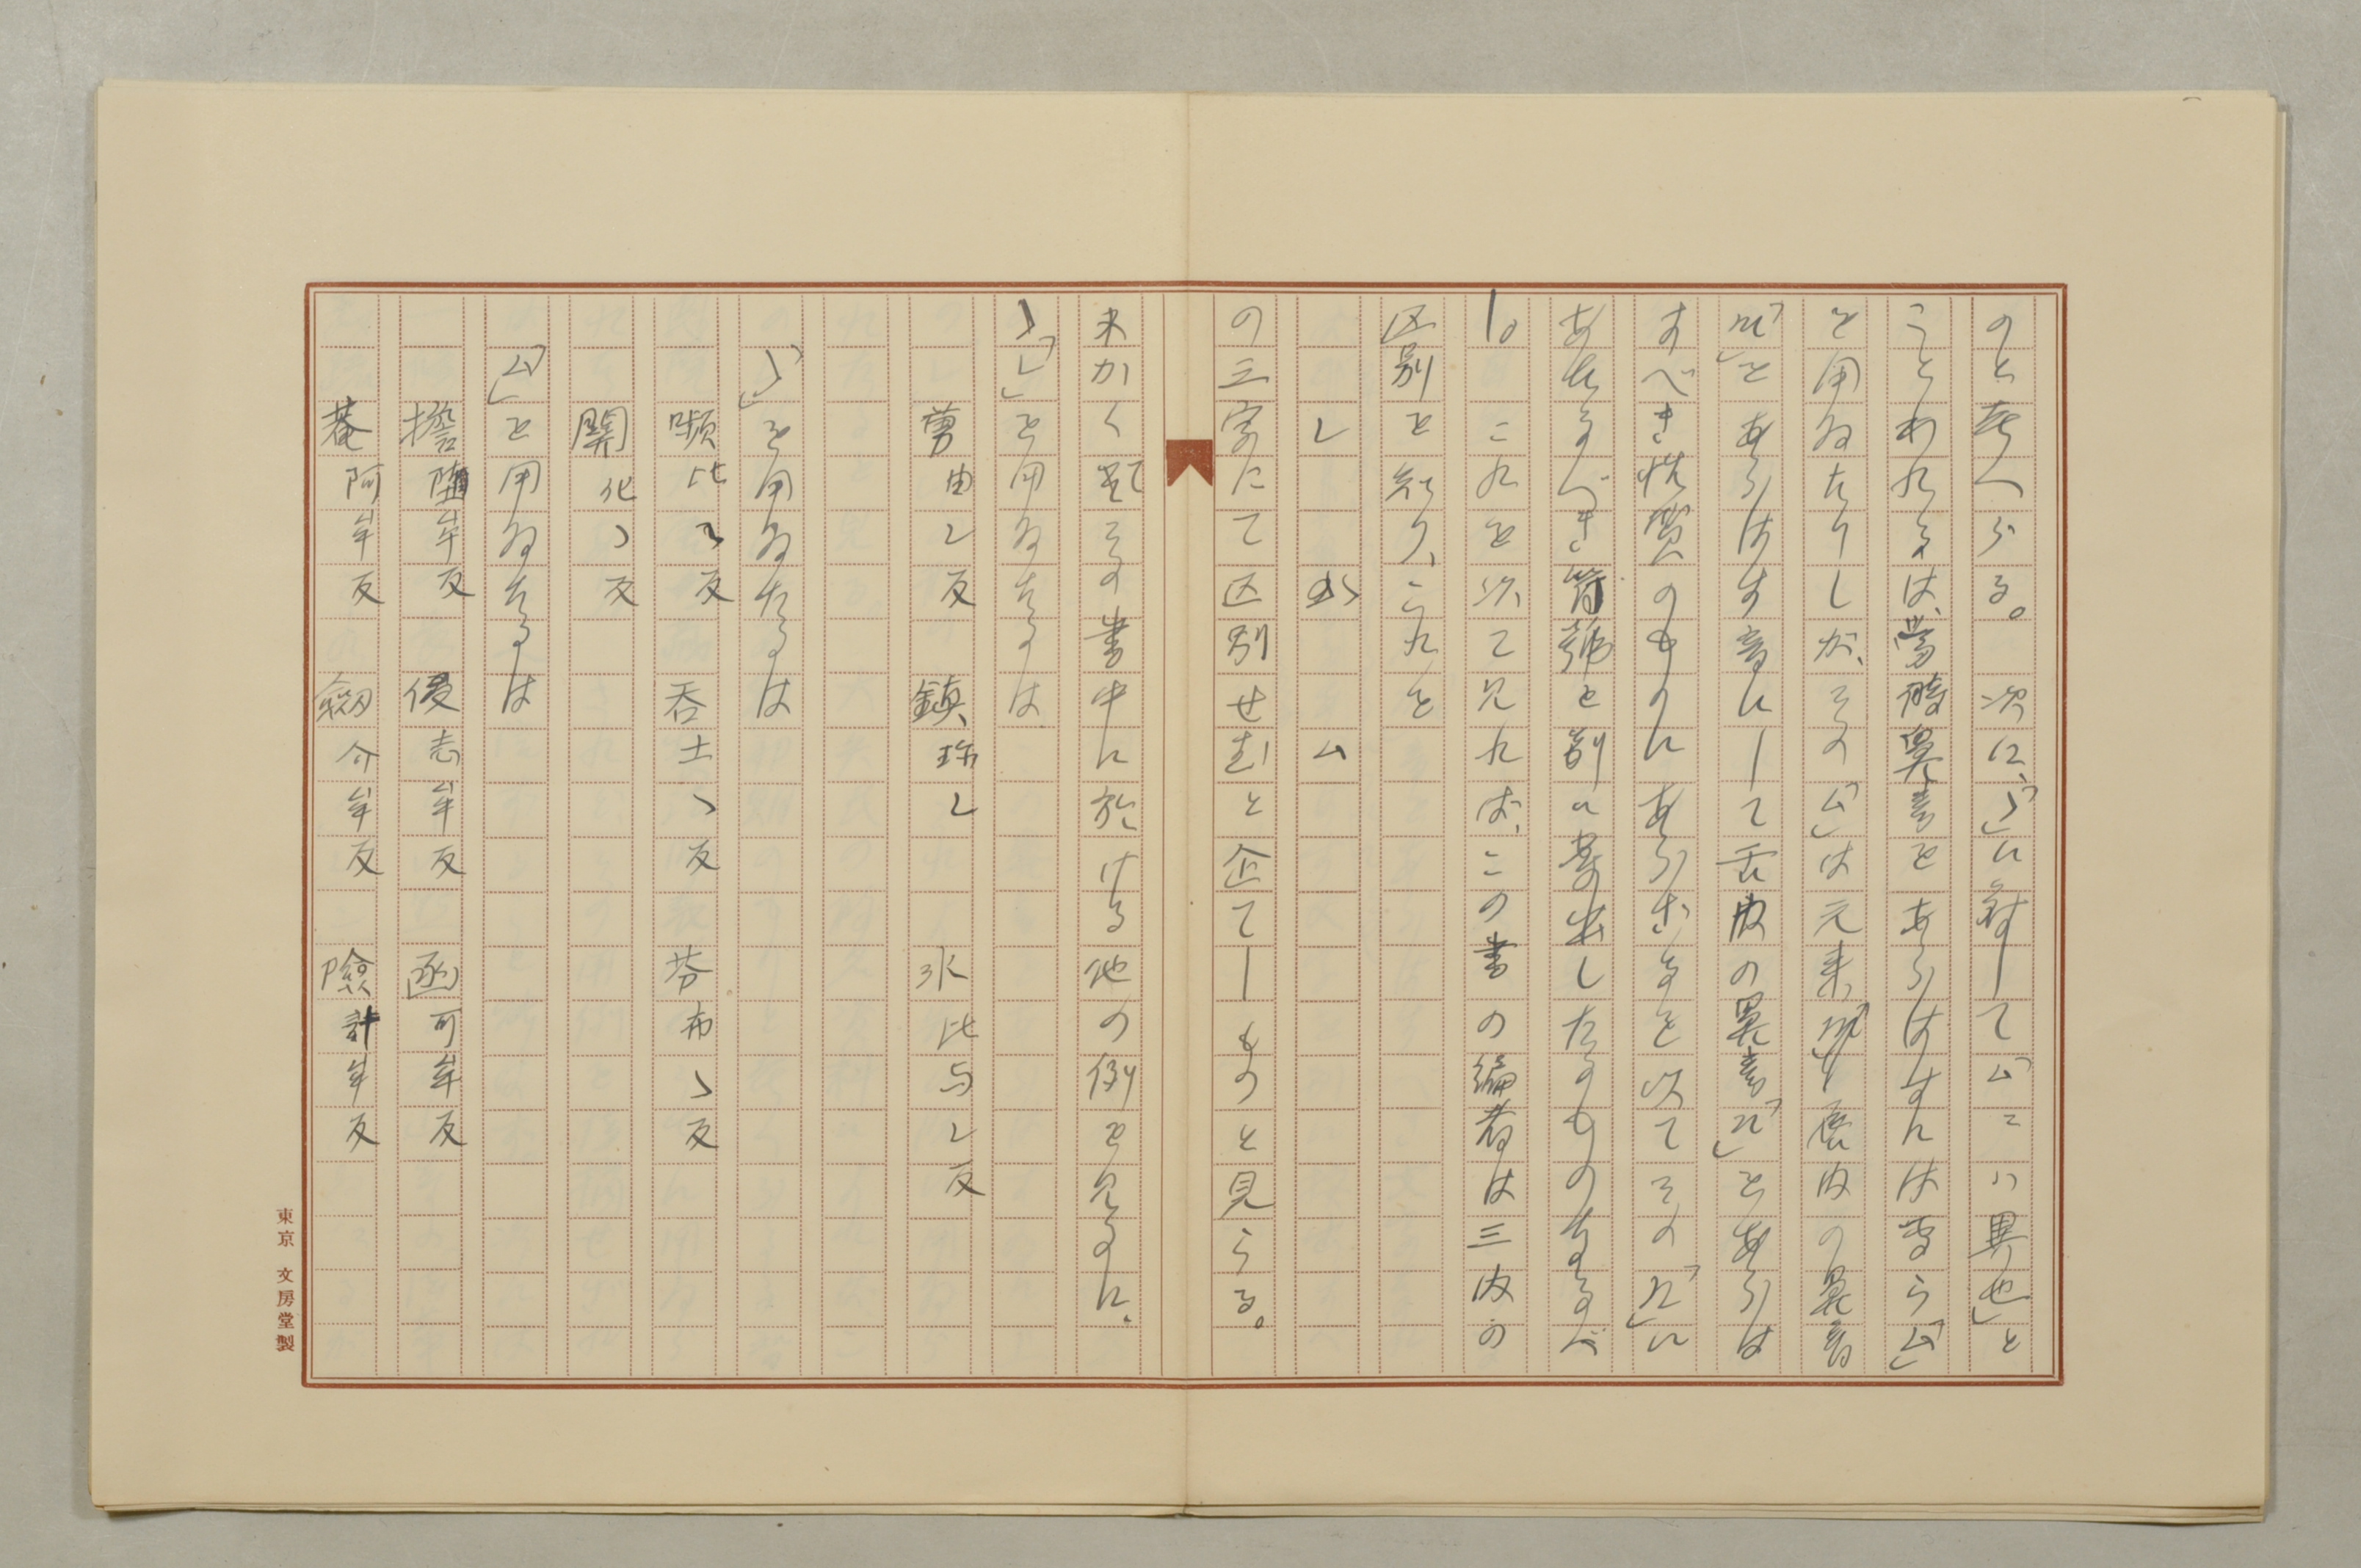 のと考へらる。次に、「ゝ」に対して「ム」こハ異也」と
ことわれるは、當時異音をあらはすには専ら「ム」
を用ゐたりしが、その「ム」は元来脣内の異音
「ん」をあらはす音にして舌内の異音「ん」をあらは
すべき性質のものにあらざるを以てその「ん」に
あたるべき符號を別に案出したるものなるべ
し。これを以て見れば、この書の編者は三内の
区別を知り、これを
レ ム
の三字にて区別せむと企てしものと見らる。
又かく題その書中に於ける他の例を見るに、
「レ」を用ゐたるは
䓑 由レ反 鎮 珎レ 氷 比与レ反
「ゝ」を用ゐたるは
嚬 比ゝ反 呑 土ゝ反 芬 布ゝ反
関 化ゝ反
「ム」を用ゐたるは
擔 反 優 志反 函 可反
菴 阿反 劔 介反 險 計反
東京 文房堂製